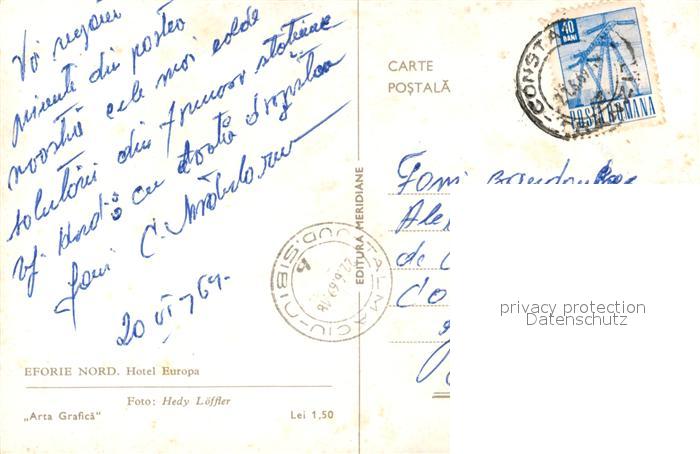 Vă rugăm
primiți din partea
noastră cele mai calde
salutări din frumoasa stațiune
Ef. Nord, cu toată dragostea
20 VI 969.
EFORIE NORD. Hotel Europa
Foto: Hedy Löffler
„Arta Grafică” Lei 1,50
EDITURA MERIDIANE
CARTE
POȘTALĂ
40
BANI
POSTA ROMANA
CONSTANȚA
TALMACIU-JUD.SIBIU
22.6.69.18
Fam
Ale
de
Co
privacy protection
Datenschutz